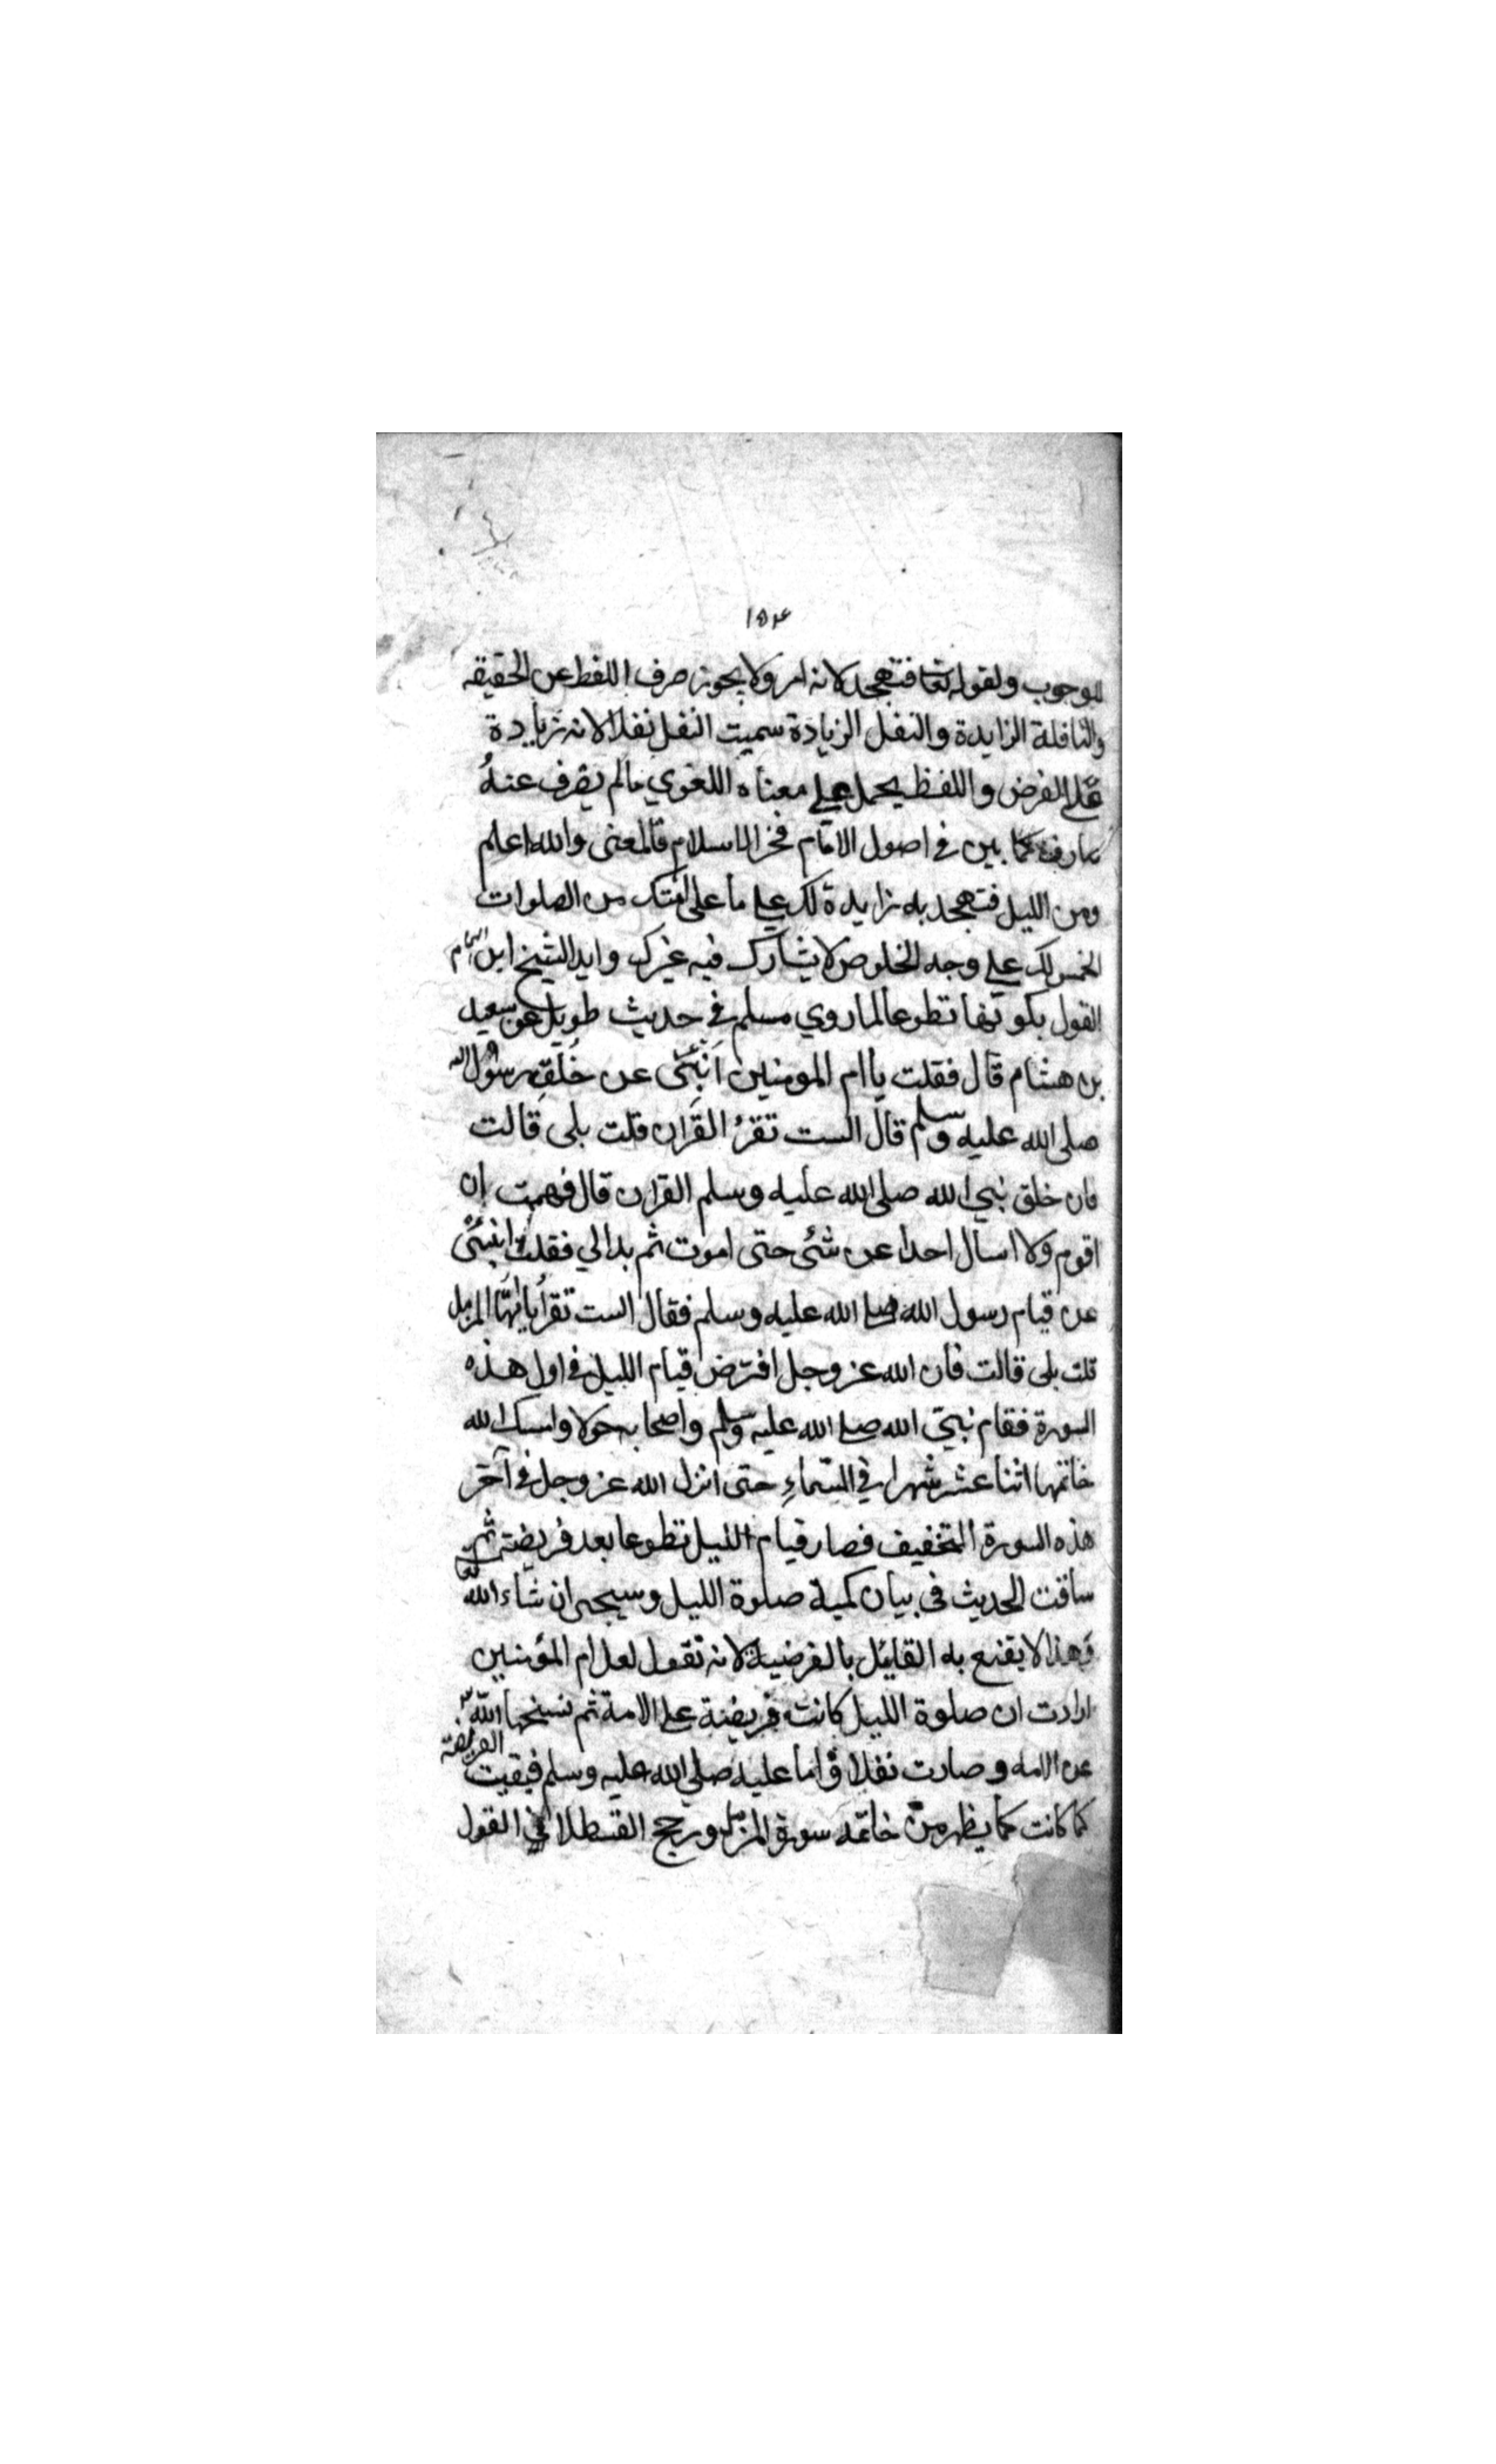 ۱۵۴
للوجوب ولقوله تعا فتهجد لانه امر ولا يجوز صرف اللفظ عن الحقيقه
والنافلة الزايدة والنفل الزيادة سميت النفل نفلا لانه زيادة
على الفرض واللفظ يحمل على معناه اللغوي مالم يصرف عنهُ
صارف كما بين في اصول الامام فخر الاسلام فالمعنى والله اعلم
ومن الليل فتهجد به زايدة لك على ما على امتك من الصلوات
الخمس لك على وجه الخلوص لا يشارك فيه غيرك وايد الشيخ ابن الهمام
القول بكونها تطوعا لما روي مسلم في حديث طويل عن سعيد
بن هشام قال فقلت يا ام المومنين اَنبِئَى عن خُلَقِ رسول الله
صلى الله عليه وسلم قال الست تقرُ القران قلت بلى قالت
فان خلق نبي الله صلى الله عليه وسلم القران قال فهمت ان
اقوم ولا اسال احدا عن شئ حتى اموت ثم بدالي فقلت انبئى
عن قيام رسول الله صلى الله عليه وسلم فقال الست تقرأ يا ايها المزمل
قلت بلى قالت فان الله عز وجل افترض قيام الليل في اول هذه
السورة فقام نبي الله صلى الله عليه وسلم واصحابه حولا وامسك الله
خاتمتها اثنا عشر شهرا في السّماءِ حتى انزل الله عز وجل في آخر
هذه السورة التخفيف فصار قيام الليل تطوعا بعد فريضته ثم
ساقت الحديث فى بيان كمية صلوة الليل وسيجى ان شاء الله تعا
وهذا لا يقنع به القايئل بالفرضية لانه تقول لعل ام المؤمنين
ارادت ان صلوة الليل كانت فريضة على الامة ثم نسخها الله
عن الامه وصارت نفلا واما عليه صلى الله عليه وسلم فبقيت الفريضة
كما كانت كما يظهر من خاتمه سورة المزمل ورجح القسطلاني القول